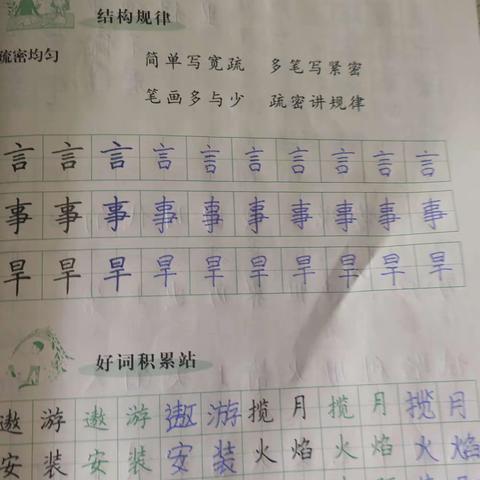 结构规律
疏密均匀
简单写宽疏 多笔写紧密
笔画多与少 疏密讲规律
言言言言言言言言言言
事事事事事事事事事事
旱旱旱旱旱旱旱旱旱旱
好词积累站
遨游遨游遨游揽月揽月揽月
安装安装安装火焰火焰火焰